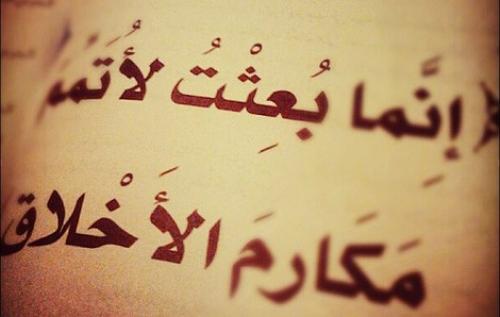 إِنَّما بُعِثْتُ لأُتَمِّمَ
مَكَارِمَ الأَخْلاق